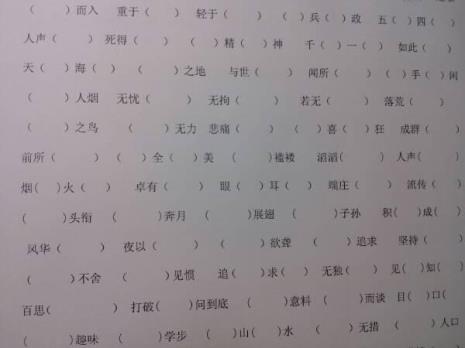 （　　）而入　重于（　　）　轻于（　　）　（　）兵（　）政　五（　）四（　）
人声（　　）　死得（　　）　（　）精（　）神　千（　）一（　）　如此（　　）
天（　）海（　）　（　　）之地　与世（　　）　闻所（　　）　（　）手（　）闲
（　　）人烟　无忧（　　）　无拘（　　）　若无（　　）　落荒（　　）
（　　）之鸟　（　　）无力　悲痛（　　）　（　）喜（　）狂　成群（　　）
前所（　　）　（　）全（　）美　（　　）褴褛　滔滔（　　）　人声（　　）
烟（　）火（　）　卓有（　　）　眼（　）耳（　）　端庄（　　）　流传（　　）
（　　）头衔　（　　）奔月　（　　）展翅　（　　）子孙　积（　）成（　）
风华（　　）　夜以（　　）　（　　）欲聋　（　　）追求　坚持（　　）
（　　）不舍　（　　）见惯　追（　）求（　）　无独（　　）　见（　）知（　）
百思（　　）　打破（　　）问到底　（　　）意料　（　　）而谈　目（　）口（　）
（　　）趣味　（　　）学步　（　）山（　）水　（　　）无措　（　　）人口